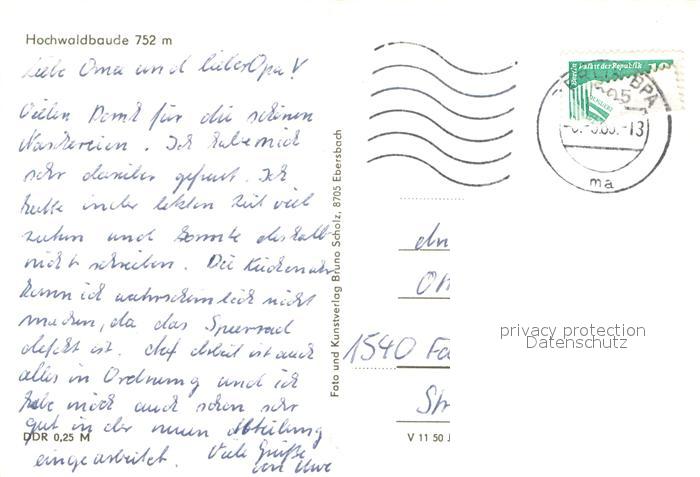 Hochwaldbaude 752 m
Liebe Oma und lieber Opa!
Vielen Dank für die schönen
Naschereien. Ich habe mich
sehr darüber gefreut. Ich
hatte in der letzten Zeit viel
zu tun und konnte deshalb
nicht schreiben. Die Küchenuhr
kann ich wahrscheinlich nicht
machen, da das Sperrad
defekt ist. Auf Arbeit ist auch
alles in Ordnung und ich
habe mich auch schon sehr
gut in der neuen Abteilung
eingearbeitet. Viele Grüße
von Uwe
DDR 0,25 M
Foto und Kunstverlag Bruno Scholz, 8705 Ebersbach
Palast der Republik
BPA
-13
ma
1540 Fa
Str
V 11 50
privacy protection
Datenschutz